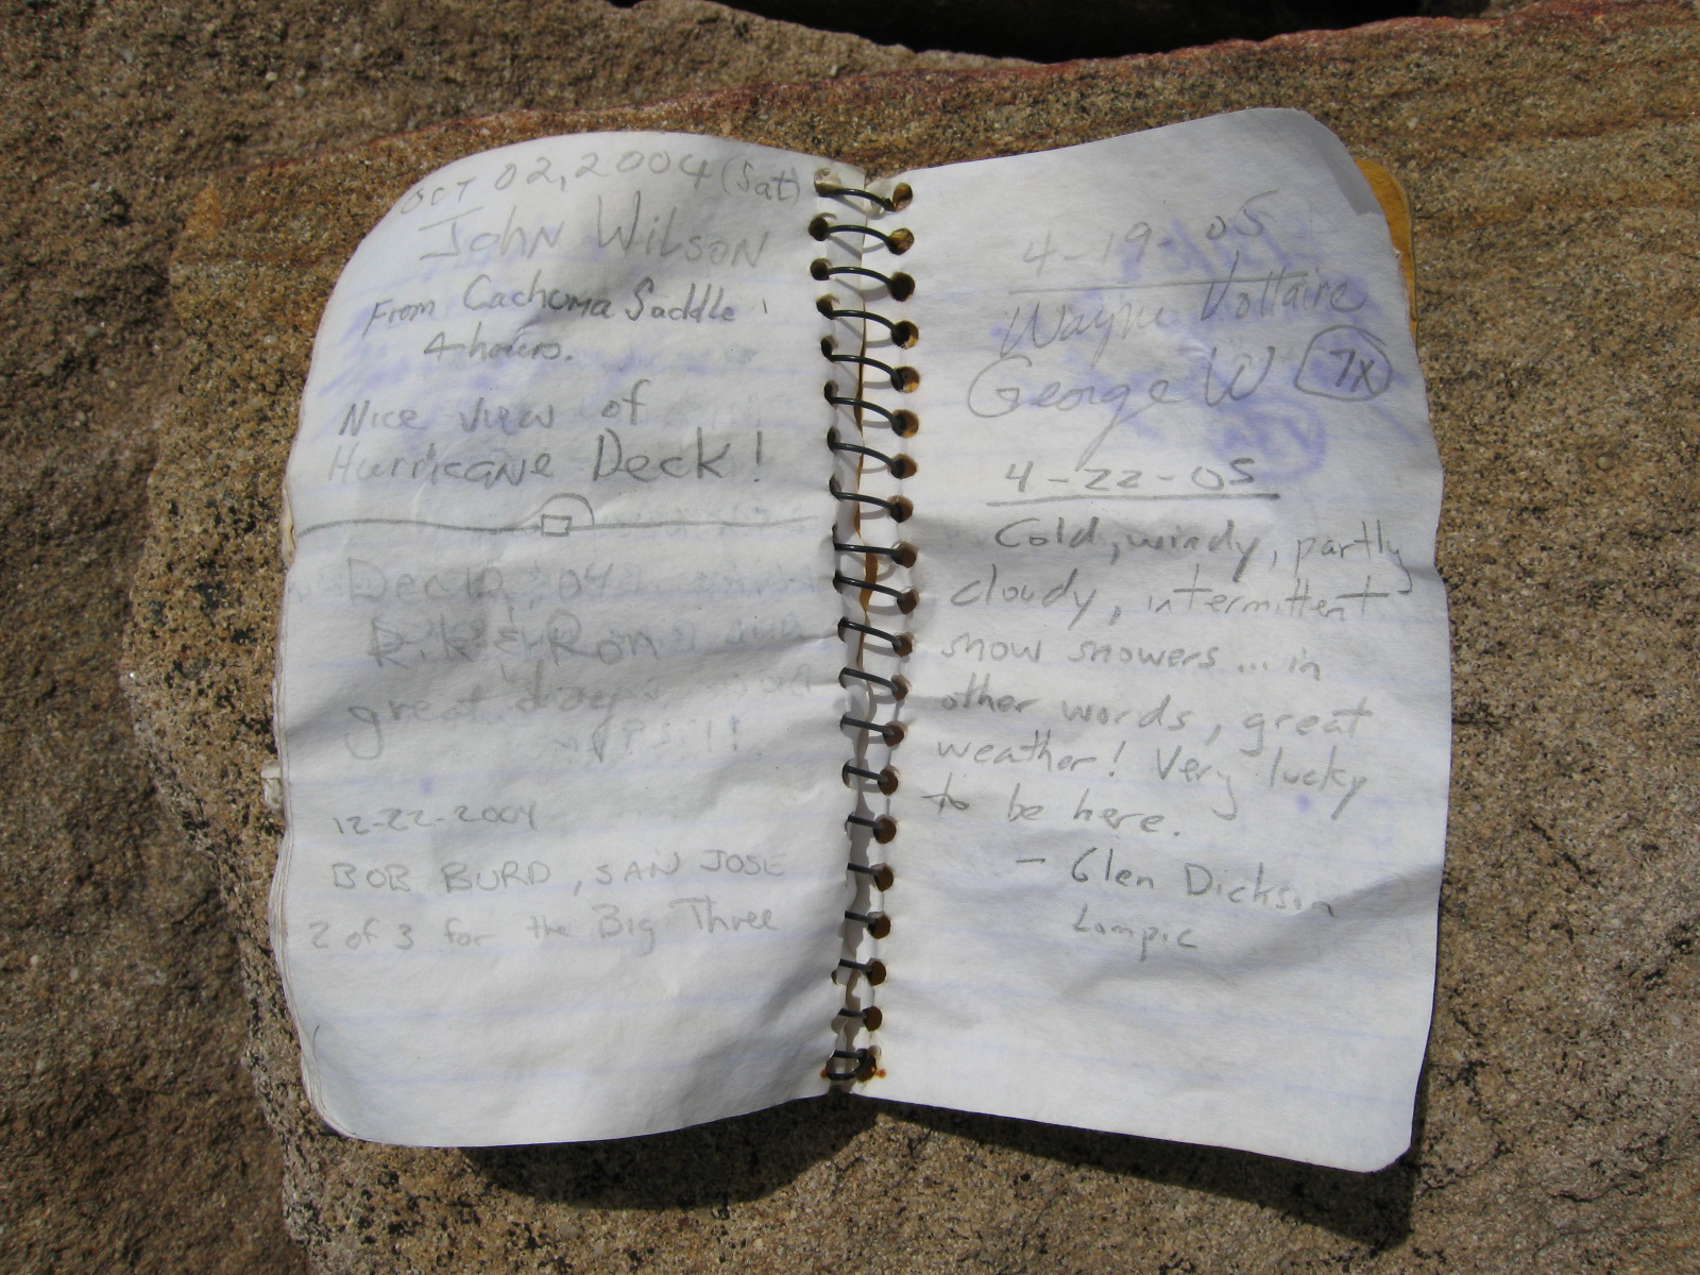 OCT 02, 2004 (Sat)
John Wilson
From Cachuma Saddle
4 hours.
Nice view of
Hurricane Deck!
Dec 04
Rik & Ron
great day
12-22-2004
BOB BURD, SAN JOSE
2 of 3 for the Big Three
4-19-05
Wayne Voltaire
George W 7x
4-22-05
Cold, windy, partly
cloudy, intermittent
snow showers... in
other words, great
weather! Very lucky
to be here.
- Glen Dickson
Lompic